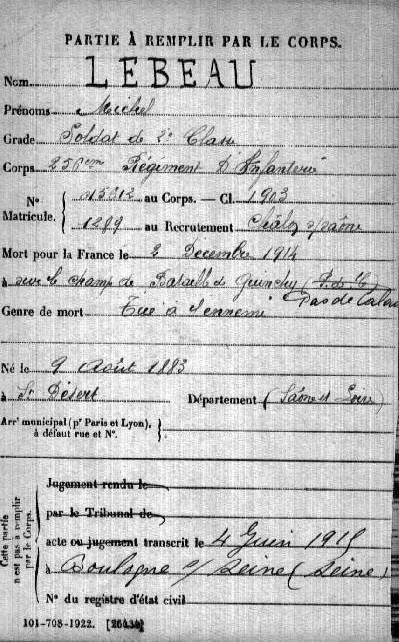 PARTIE À REMPLIR PAR LE CORPS.
Nom LEBEAU
Prénoms Michel
Grade Soldat de 2e Classe
Corps 256em Régiment D'Infanterie
N° Matricule. { 015312 au Corps. — Cl. 1903
1289 au Recrutement Châlon s/saône
Mort pour la France le 2 Décembre 1914
à sur le champ de Bataille de Guinchy (P. de C)
Pas de Calais
Genre de mort Tué à l'ennemi
Né le 9 Août 1883
à St Désert Département (Saône et Loire)
Arrt municipal (pr Paris et Lyon), à défaut rue et N°. }
Cette partie n'est pas à remplir par le Corps.
Jugement rendu le
par le Tribunal de
acte ou jugement transcrit le 4 Juin 1915
à Boulogne s/ Seine (Seine)
N° du registre d'état civil
101-708-1922. [26434]